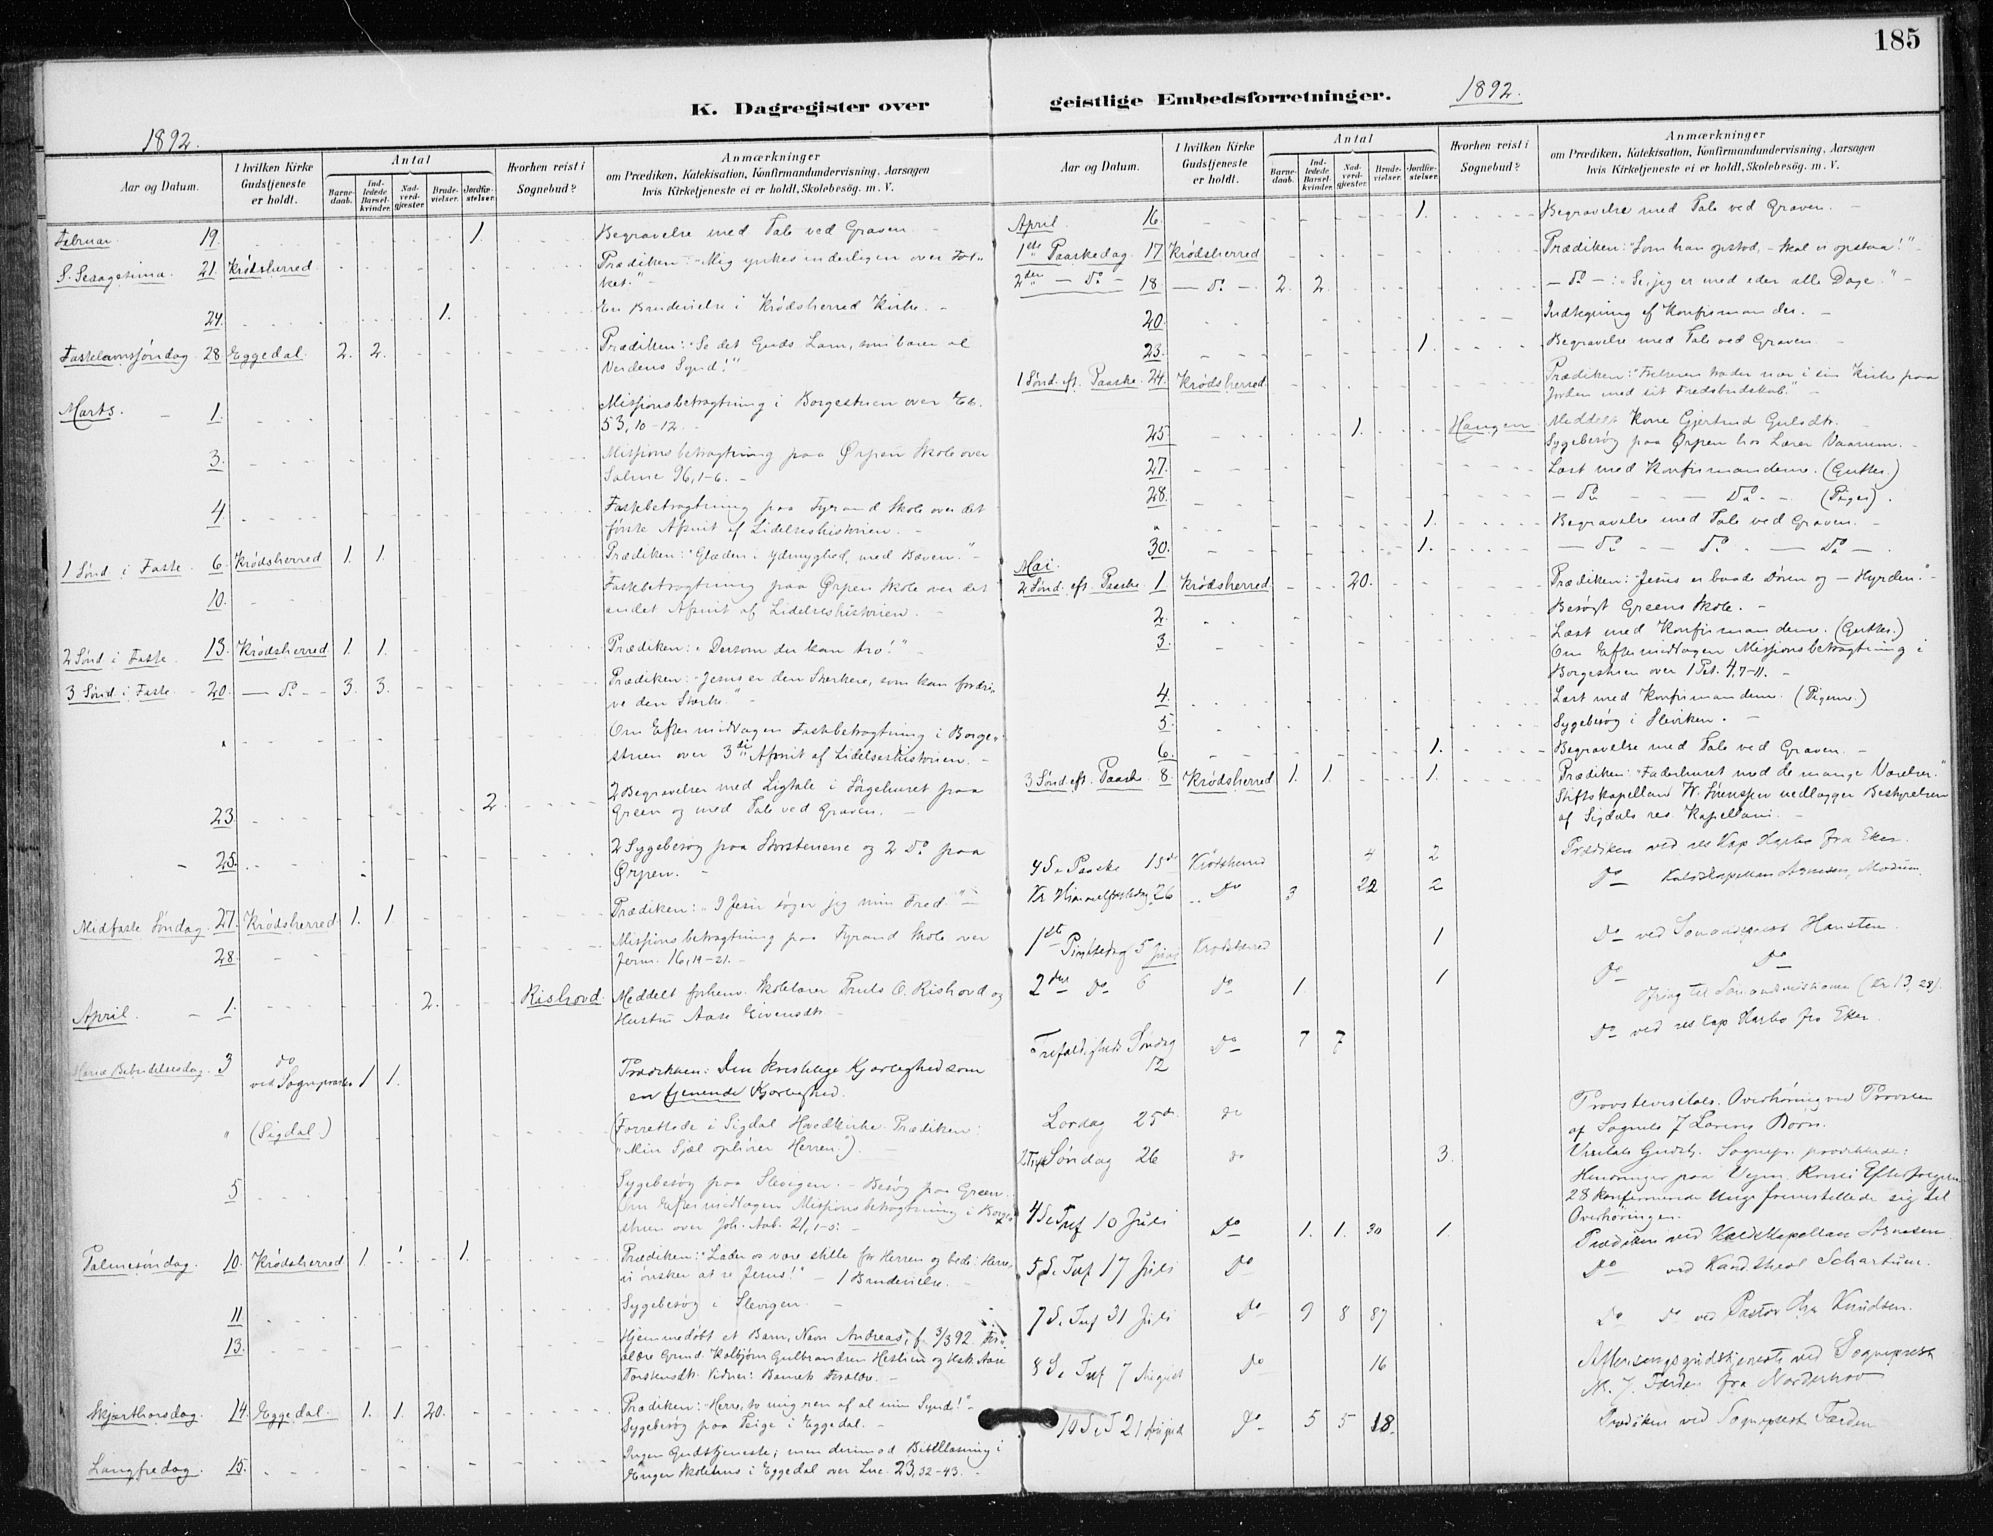 185
K. Dagregister over
geistlige Embedsforretninger.
1892.
1892.
Aar og Datum.
I hvilken Kirke Gudstjeneste er holdt.
Antal
Barnedaab.
Indledede Barselkvinder.
Nadverdgjæster.
Brudevielser.
Jordfæstelser.
Hvorhen reist i Sognebud?
Anmærkninger
om Prædiken, Katekisation, Konfirmandundervisning, Aarsagen
hvis Kirketjeneste ei er holdt, Skolebesøg. m. V.
Februar 19. 1. Begravelse med Tale ved Graven.
S. Sexagesima. 21. Krødsherred Prædiken: "Mig ynkes inderligen over Fol-
ket."
24. 1. En Brudevielse i Krødsherred Kirke.
Fastelavnssøndag 28 Eggedal. 2. 2. Prædiken: "Se det Guds Lam, som bærer al
Verdens Synd!"
Marts. 1. Missionsbetragtning i Borgestuen over Es.
53, 10-12.
3. Missionsbetragtning paa Ørpen Skole over
Salme 96, 1-6.
4 Fastebetragtning paa Fyrand Skole over det
første Afsnit af Lidelseshistorien.
1 Sønd i Faste 6. Krødsherred 1. 1. Prædiken: "Glæden i ydmyghed, med Bæven."
10. Fastebetragtning paa Ørpen Skole over det
andet Afsnit af Lidelseshistorien
2 Sønd i Faste 13. Krødsherred 1. 1. Prædiken: "Dersom du kan tro!"
3 Sønd i Faste 20. do 3. 3. Prædiken: "Jesus er den Stærkere, som kan fordri-
ve den Stærke."
Om Eftermiddagen Fastebetragtning i Borge-
stuen over 3die Afsnit af Lidelseshistorien.
23. 2. 2 Begravelser med Ligtale i Sørgehuset paa
Green og med Tale ved Graven.
25. 2 Sygebesøg paa Storsteneme og 2 do paa
Ørpen.
Midfaste Søndag 27. Krødsherred 1. 1. Prædiken: "I Jesu søger jeg min Fred."
28. Missionsbetragtning paa Fyrand Skole over
Jerm. 16, 19-21.
April. 1. 2. Rishovd. Meddelt forhenv. Skolelærer Truls O. Rishovd og
Hustru Aase Eivensdtr.
Mariæ Bebudelsesdag. 3 do ved Sognepræsten 1 1. Prædiken: Den kristelige Kjærlighed som
en tjenende Kjærlighed.
" (Sigdal.) (Forrettede i Sigdal Hovedkirke. Prædiken:
"Min Sjæl ophøier Herren").
5 Sygebesøg paa Slevigen. – Besøg paa Green.
Om Eftermiddagen Missionsbetragtning i Borge-
stuen over Joh. Aab. 21, 1-5.
Palmesøndag. 10. Krødsherred 1. 1. 1. Prædiken: "Lader os være stille for Herren og bede: Herre,
vi ønsker at se Jesus!" – 1 Brudevielse.
11 Sygebesøg i Slevigen.
13. Hjemmedøbt et Barn, Navn Andreas, f. 3/3 92. For-
ældre Grund. Kolbjørn Gulbrandsen Hestiud og Hstr. Aase
Torstensdtr. Vidner: Barnets Forældre.
Skjærthorsdag. 14. Eggedal. 1. 1. 20. Prædiken: "Herre, to mig ren af al min Synd!"
Sygebesøg paa Teige i Eggedal.
Langfredag. 15. Ingen Gudstjeneste; men derimod Bibellæsning i
Enger Skolehus i Eggedal over Luc. 23, 32-43.
Aar og Datum.
I hvilken Kirke Gudstjeneste er holdt.
Antal
Barnedaab.
Indledede Barselkvinder.
Nadverdgjæster.
Brudevielser.
Jordfæstelser.
Hvorhen reist i Sognebud?
Anmærkninger
om Prædiken, Katekisation, Konfirmandundervisning, Aarsagen
hvis Kirketjeneste ei er holdt, Skolebesøg. m. V.
April 16. 1. Begravelse med Tale ved Graven.
1ste Paaskedag. 17 Krødsherred Prædiken: "Som han opstod, – skal vi opstaa!"
2den do 18. do 2. 2. do : "Se, jeg er med eder alle Dage."
20. Indtegning af Konfirmander.
23. 1. Begravelse med Tale ved Graven.
1 Sønd. eft. Paaske. 24. Krødsherred. Prædiken: "Frelseren træder ner i sin Kirke paa
Jorden med sit Fredsbudskab."
25 1. Haugen Meddelt Kone Gjertrud Gulsdtr.
Sygebesøg paa Ørpen hos Lærer Vaarum.
27. Læst med Konfirmanderne. (Gutter.)
28. do do (Piger).
" 1. Begravelse med Tale ved Graven.
30. 1. do do do
Mai.
2 Sønd. eft. Paaske 1. Krødsherred 20. Prædiken: "Jesus er baade Døren og – Hyrden."
2. Besøgt Greens Skole.
3. Læst med Konfirmanderne. (Gutter.)
Om Eftermiddagen Missionsbetragtning i
Borgestuen over 1 Pet. 4, 7-11.
4. Læst med Konfirmanderne. (Pigerne.)
5. Sygebesøg i Sleviken.
6. 1. Begravelse med Tale ved Graven.
3 Sønd eft. Paaske. 8. Krødsherred 1. 1. 1. Prædiken: "Faderhuset med de mange Værelser."
Stiftskapellan W. Svenssen nedlægger Bestyrelsen
af Sigdals res. Kapellani.
4 S. e Paaske 15de Krødsherred 4 2 Prædiken ved res Kap Harbo fra Eker.
Kr Himmelfartsdag 26 Do 3 22 2 Do Kaldskapellan Aanesen, Modum.
1ste Pintsedag 5 Juni Krødsherred 1 Do ved Sømandsprest Hansten.
2den do 6 Do 1 1 Do Do
Ofring til Sømandsmissionen (Kr 13,28).
Trefoldigheds Søndag 12 Do 7 7 Do ved res Kap Harbo fra Eker.
Lørdag 25de do Provstevisitats. Overhøring ved Provsten
af Sognets 7 Læreres Børn.
2 Trif Søndag 26 do 3. Visitats Gudstj. Sognepr. prædikede:
Henvisninger paa Vejen.
28 konfirmerede Unge fremstillede sig til
Overhøringen.
4 S. e Trif 10 Juli Do 1. 1. 30 1. Prædiken ved Kaldskapellan Aanesen
5 S. e Trif 17 Juli Do Do ved Kand. theol Schartum.
7 S. e Trif 31 Juli Do 9 8 87 Do Do ved Pastor Chr Knudsen.
8 S. e Trif 7 August Do 16 Aftensangsgudstjeneste ved Sogneprest
M. J. Færden fra Norderhov
10 S. e T 21 August Do 5 5 18. Prædiken ved Sogneprest Færden